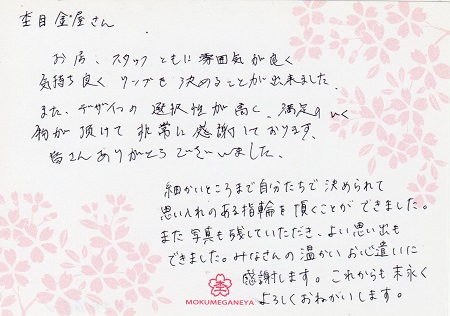 杢目金屋さん
お店、スタッフともに雰囲気が良く
気持ち良くリングを決めることが出来ました。
また、デザインの選択性が高く、満足のいく
物が頂けて非常に感謝しております。
皆さんありがとうございました。
細かいところまで自分たちで決められて
思い入れのある指輪を頂くことができました。
また写真も残していただき、よい思い出も
できました。みなさんの温かいお心遣いに
感謝します。これからも末永く
よろしくおねがいします。
MOKUMEGANEYA